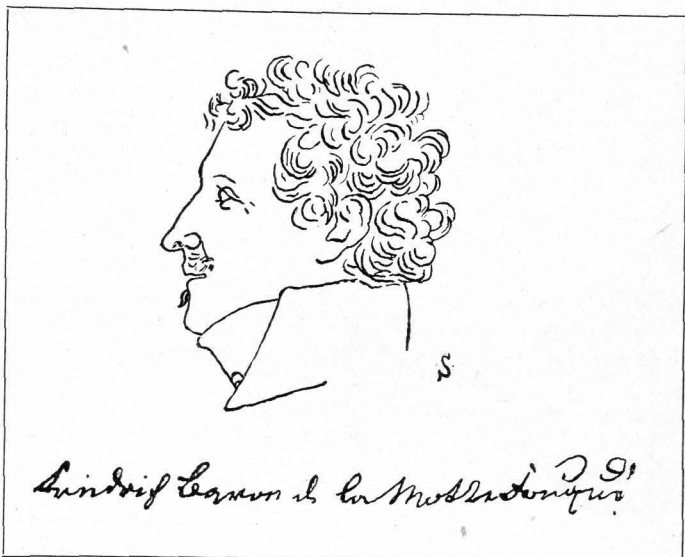 S
Friedrich Baron de la Motte Fouqué